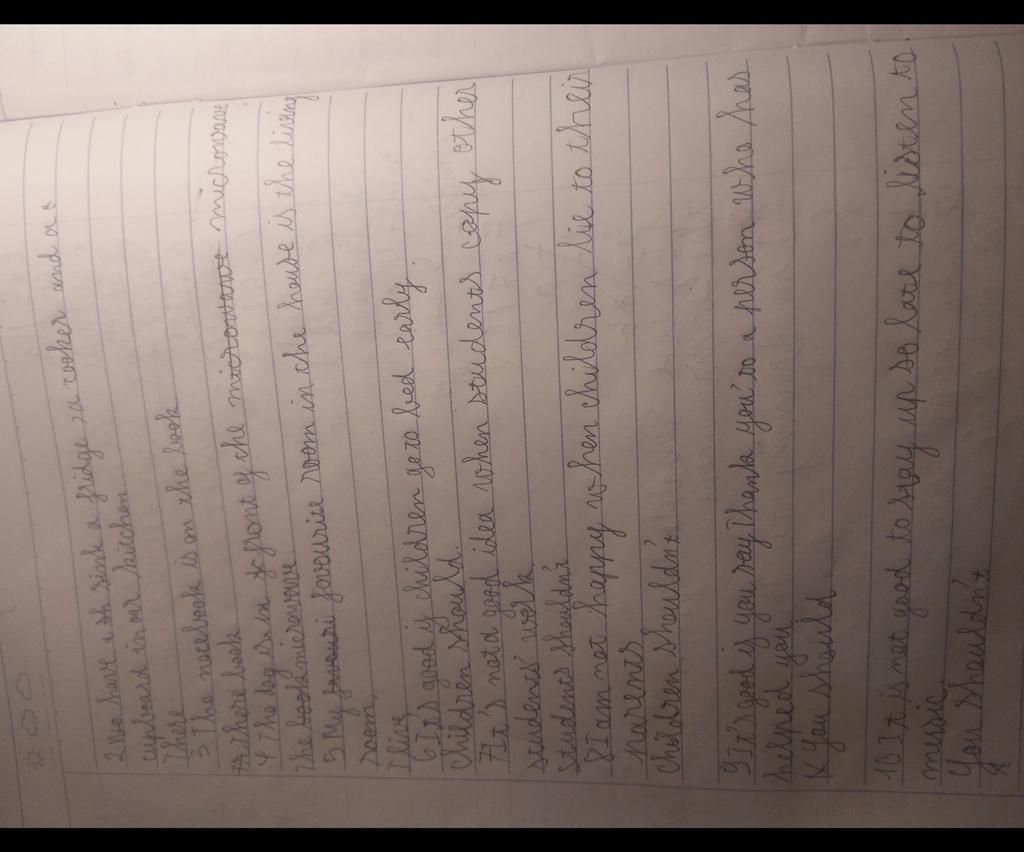 2 We have a sink a fridge, a cooker and a
cupboard in our kitchen
There
3 The notebook is on the book
There book
4 The dog is in front of the microwave microwave
The book microwave
5 My favouri favourite room in the house is the living
room.
I live
6 It's good if children go to bed early.
Children should.
7 It's not a good idea when students copy other
students' work
Students shouldn't
8 I am not happy when children lie to their
parents
Children shouldn't
9 It's good if you say Thank you to a person who has
helped you
You should
10 It is not good to stay up so late to listen to
music.
You shouldn't